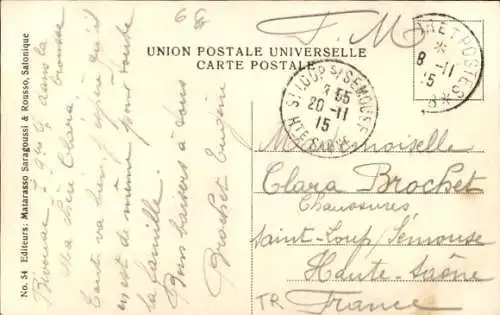 68
F. M.
UNION POSTALE UNIVERSELLE
CARTE POSTALE
TRÉSOR ET POSTES
8 -11
15
ST LOUP S/SEMOUSE
7 35
20 -11
15
HTE SAONE
No. 54 Editeurs: Matarasso Saragoussi & Rousso, Salonique
Bivouac dans la brousse
Ma chère Clara
tout va bien, j'espère qu'il
en est de même pour toute
la famille.
Bons baisers à tous
Brochet Eugène
Mademoiselle
Clara Brochet
Chaussures
Saint-Loup s/Semouse
Haute-Saône
France
TR